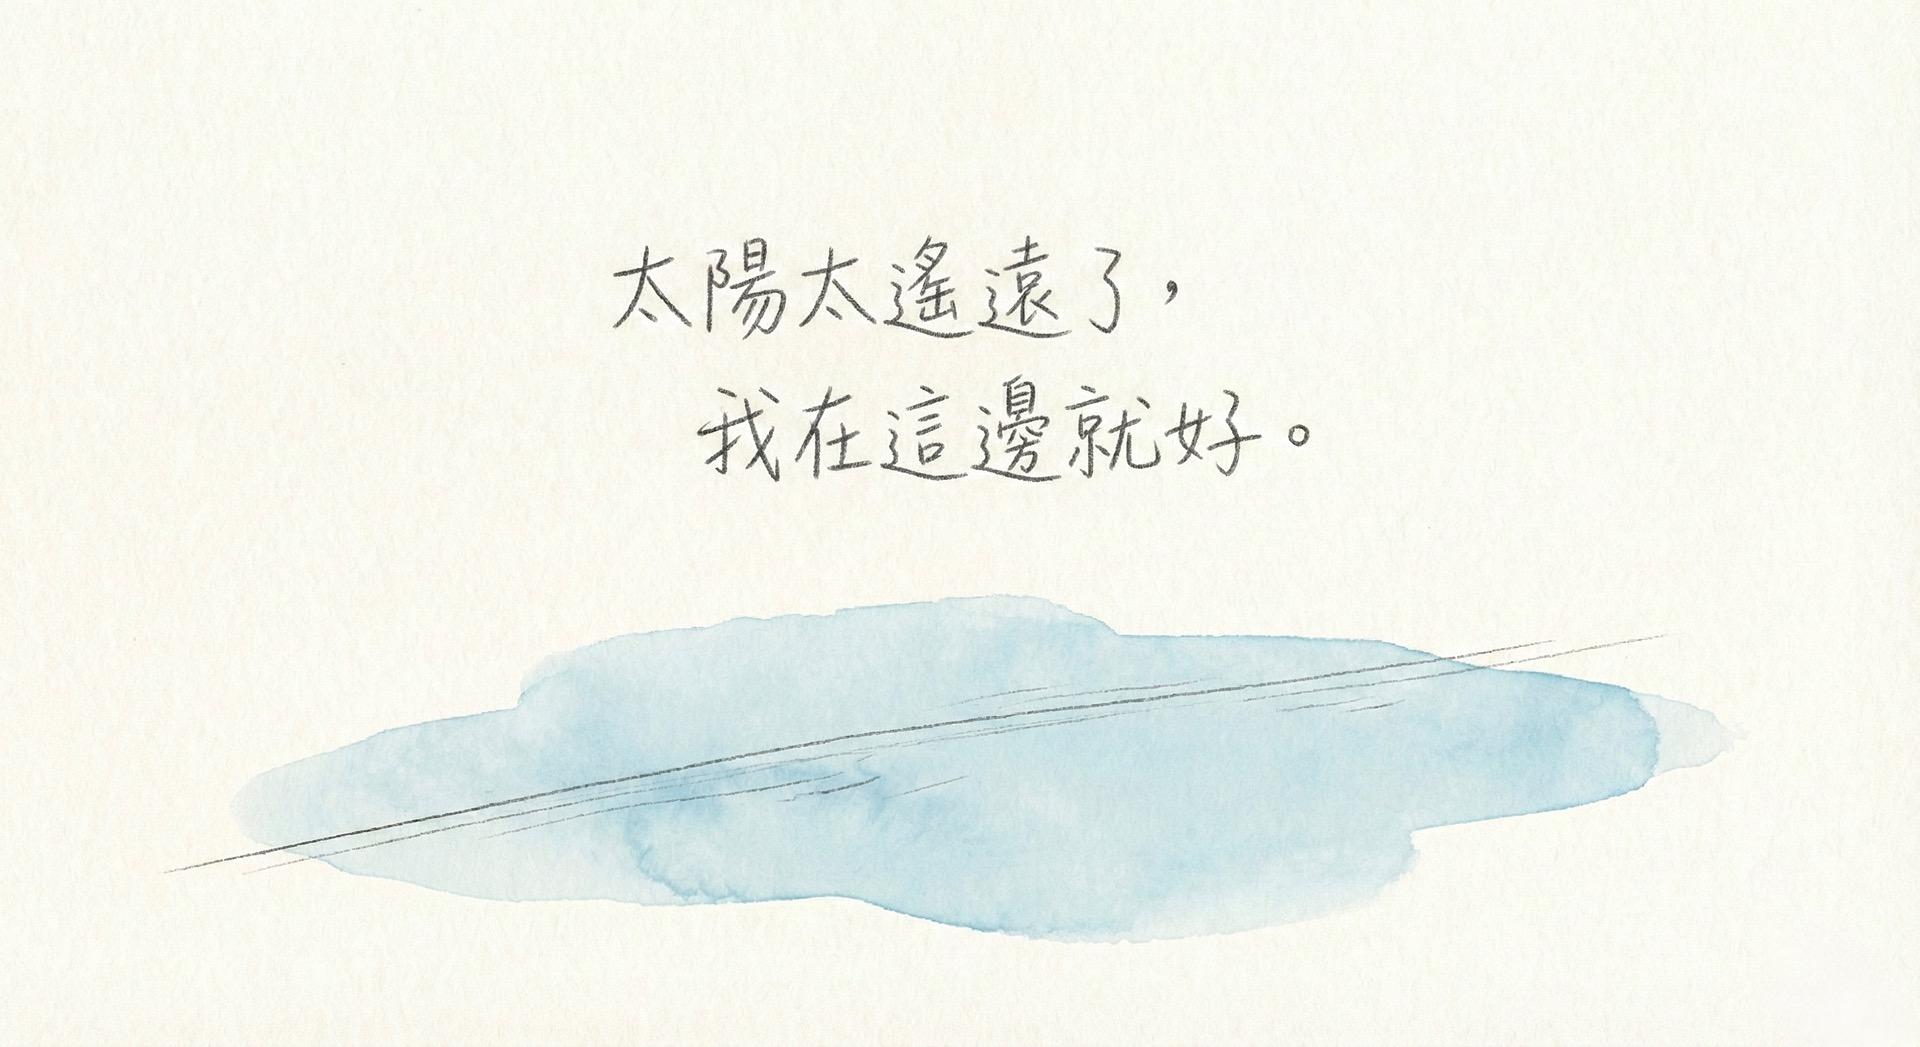 太陽太遙遠了，
我在這邊就好。